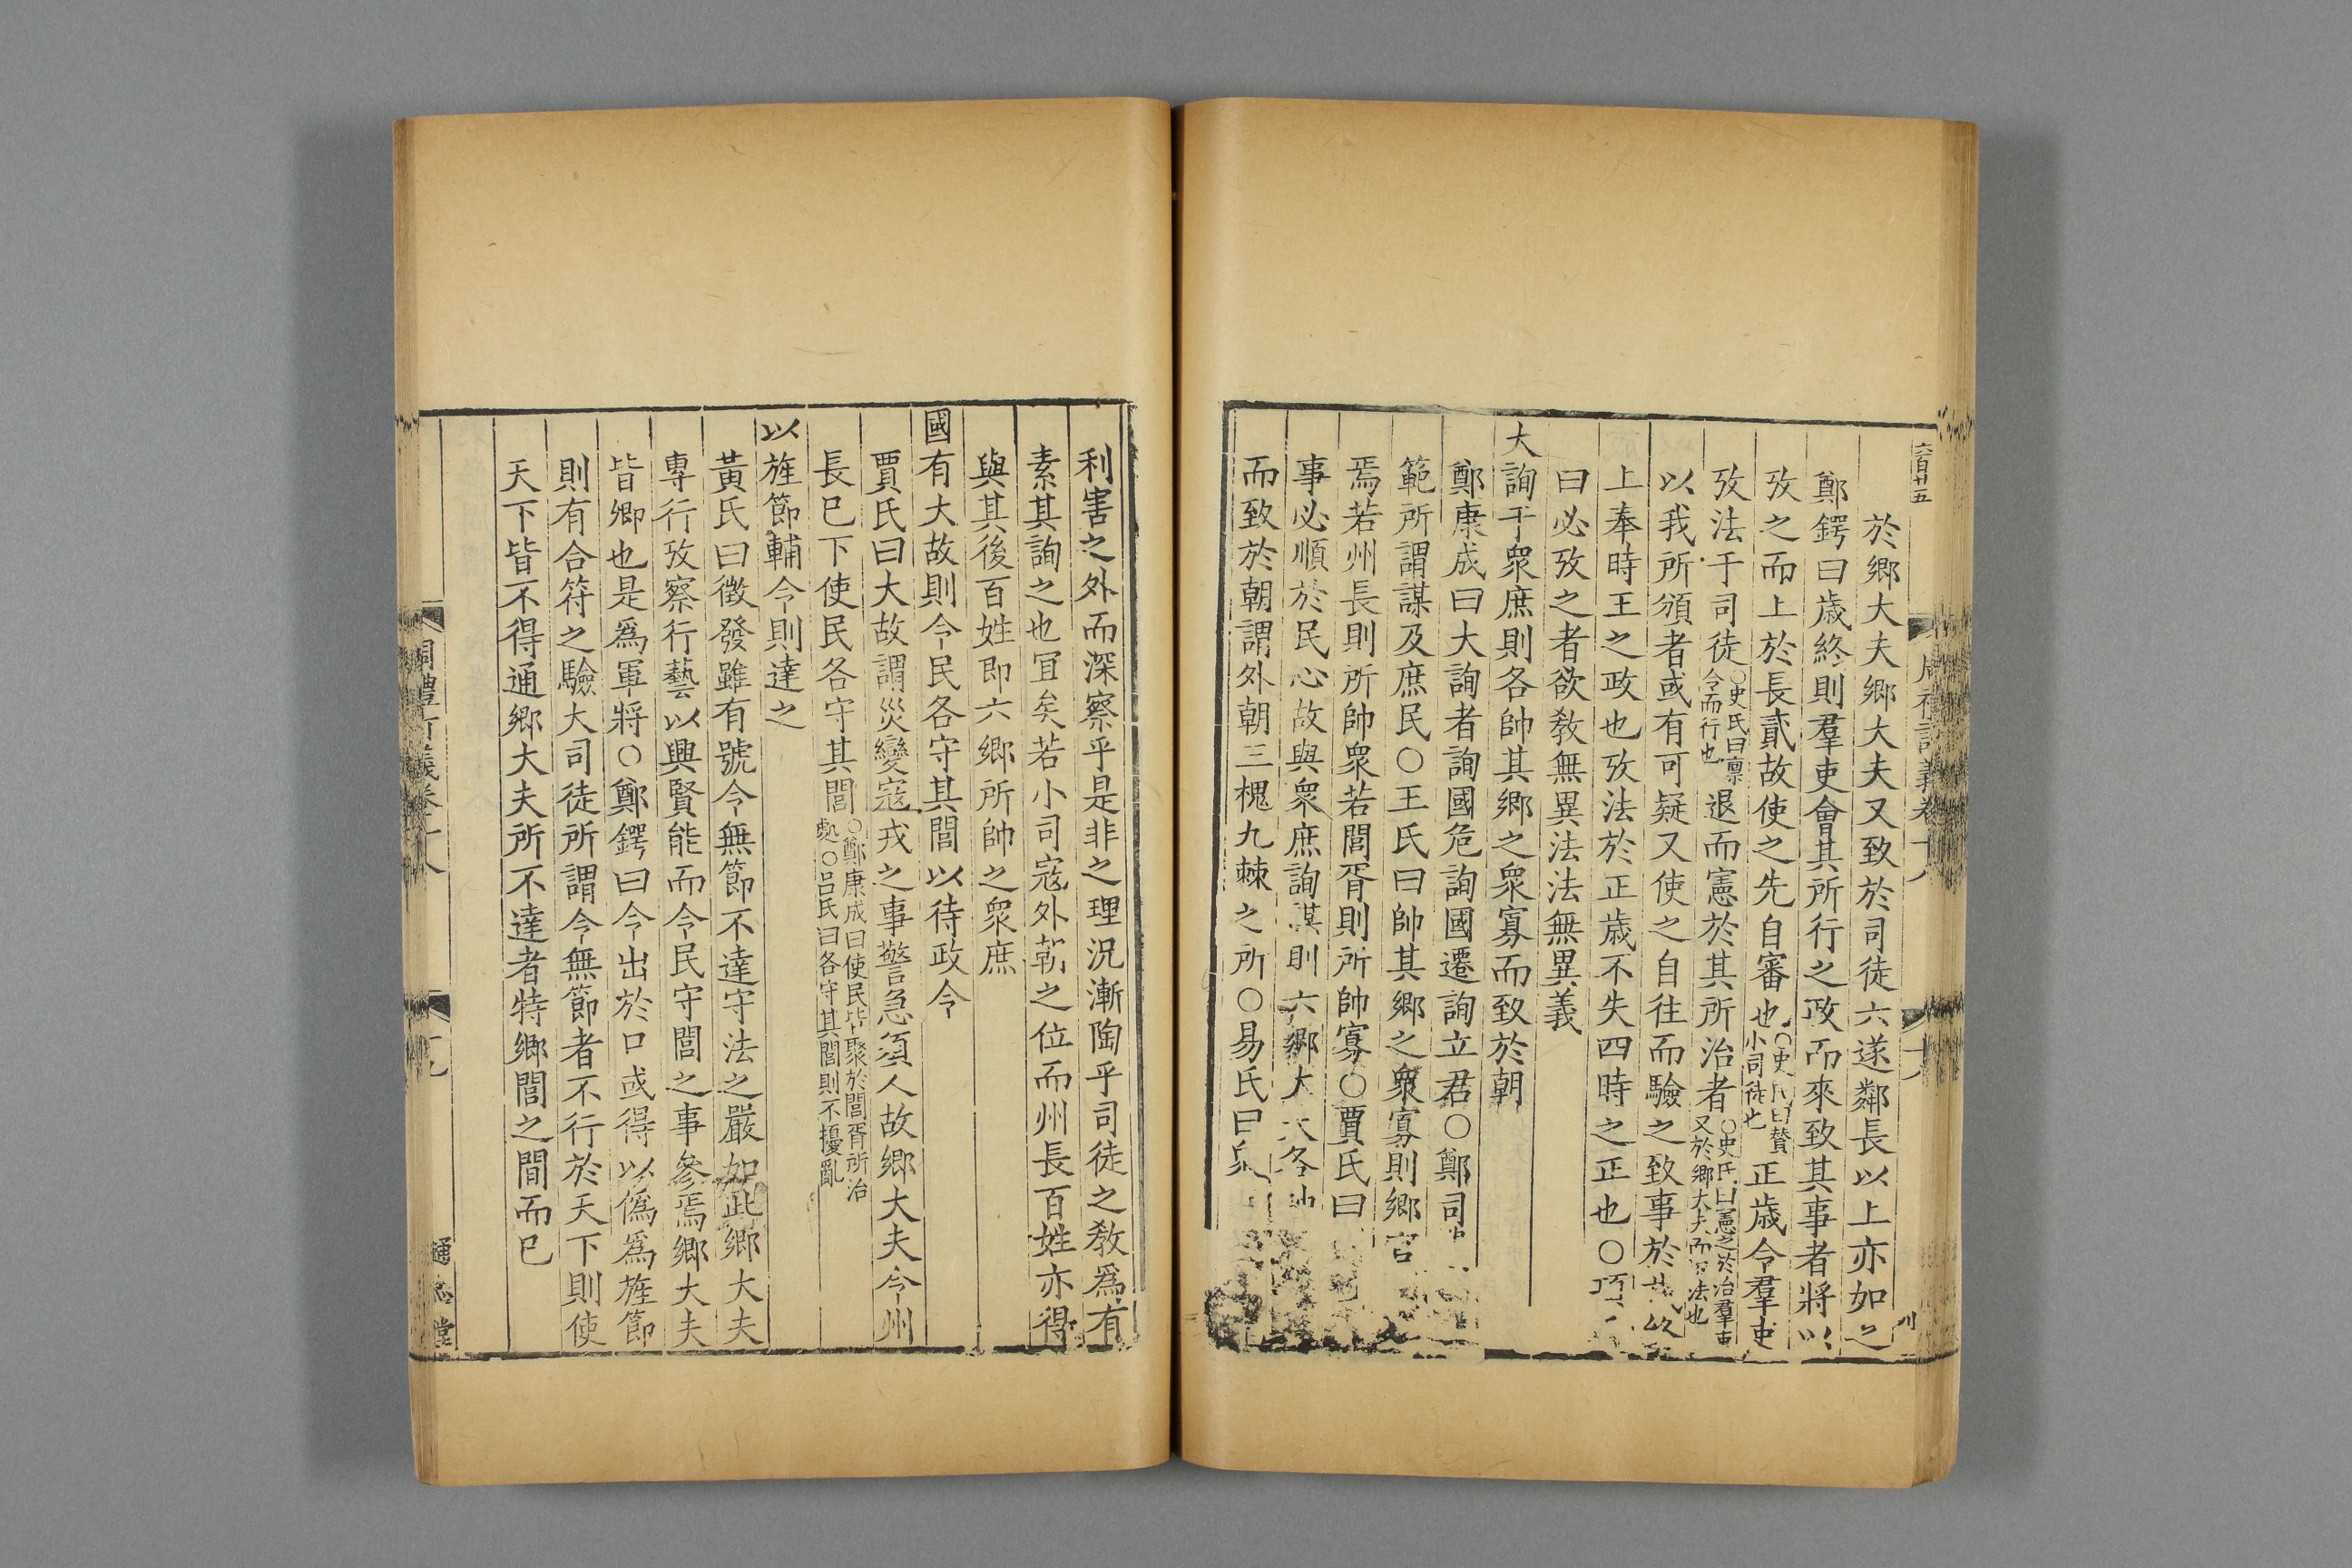 六百廿五
於鄉大夫鄉大夫又致於司徒六遂鄰長以上亦如之
鄭鍔曰歲終則羣吏會其所行之政而來致其事者將以
攷之而上於長貳故使之先自審也〇史氏曰贊小司徒也正歲令羣吏
攷法于司徒〇史氏曰稟令而行也退而憲於其所治者〇史氏曰憲之於治羣吏又於鄉大夫而法也
以我所頒者或有可疑又使之自往而驗之致事於攷
上奉時王之政也攷法於正歲不失四時之正也〇項
曰必攷之者欲敎無異法法無異義
大詢于衆庶則各帥其鄉之衆寡而致於朝
鄭康成曰大詢者詢國危詢國遷詢立君〇鄭司
範所謂謀及庶民〇王氏曰帥其鄉之衆寡則鄉官
焉若州長則所帥衆若閭胥則所帥寡〇賈氏曰
事必順於民心故與衆庶詢謀則六鄉大夫各帥
而致於朝謂外朝三槐九棘之所〇易氏曰
利害之外而深察乎是非之理況漸陶乎司徒之敎爲有
素其詢之也宜矣若小司寇外朝之位而州長百姓亦得
與其後百姓即六鄉所帥之衆庶
國有大故則令民各守其閭以待政令
賈氏曰大故謂災變寇戎之事警急須人故鄉大夫令州
長已下使民各守其閭〇鄭康成曰使民皆聚於閭胥所治處〇呂氏曰各守其閭則不擾亂
以旌節輔令則達之
黃氏曰徵發雖有號令無節不達守法之嚴如此鄉大夫
專行攷察行藝以興賢能而令民守閭之事參焉鄉大夫
皆鄉也是爲軍將〇鄭鍔曰令出於口或得以僞爲旌節
則有合符之驗大司徒所謂令無節者不行於天下則使
天下皆不得通鄉大夫所不達者特鄉閭之間而已
通志堂